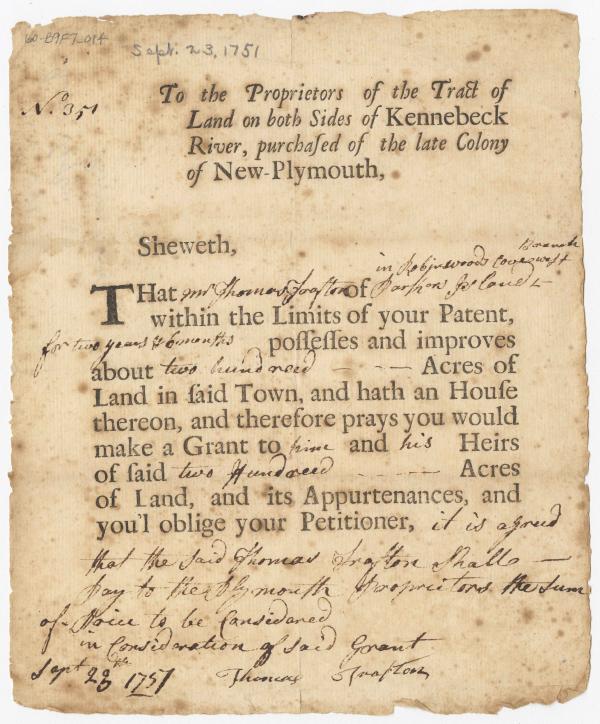 60-B9F7-014
Sept. 23, 1751
No. 351
To the Proprietors of the Tract of
Land on both Sides of Kennebeck
River, purchaſed of the late Colony
of New-Plymouth,
Sheweth,
in Robinwoods Cove west
Branch
THat mr Thomas Trafton of Parkers Island
within the Limits of your Patent,
for two years & 6 months poſſeſſes and improves
about two hundreed Acres of
Land in ſaid Town, and hath an Houſe
thereon, and therefore prays you would
make a Grant to him and his Heirs
of ſaid two Hundreed Acres
of Land, and its Appurtenances, and
you'l oblige your Petitioner, it is agreed
that the said Thomas Trafton Shall
pay to the Plymouth Proprietors the Sum
of Price to be Considered
in Consideration of said Grant
Sept 23th 1751 Thomas Trafton